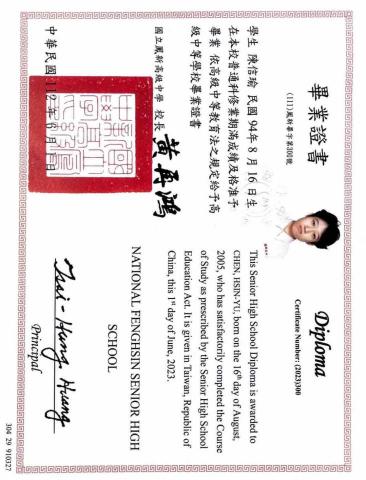 畢業證書
(111)鳳新畢字第300號
學生 陳信瑜 民國 94年 8 月 16 日生
在本校普通科修業期滿成績及格准予
畢業 依高級中等教育法之規定給予高
級中等學校畢業證書
國立鳳新高級中學 校長 黃再鴻
中華民國 112 年 6 月 1 日
Diploma
Certificate Number: (2023)300
This Senior High School Diploma is awarded to
CHEN, HSIN-YU, born on the 16th day of August,
2005, who has satisfactorily completed the Course
of Study as prescribed by the Senior High School
Education Act. It is given in Taiwan, Republic of
China, this 1st day of June, 2023.
NATIONAL FENGHSIN SENIOR HIGH
SCHOOL
Tsai-Hung, Huang
Principal
304 29 910327